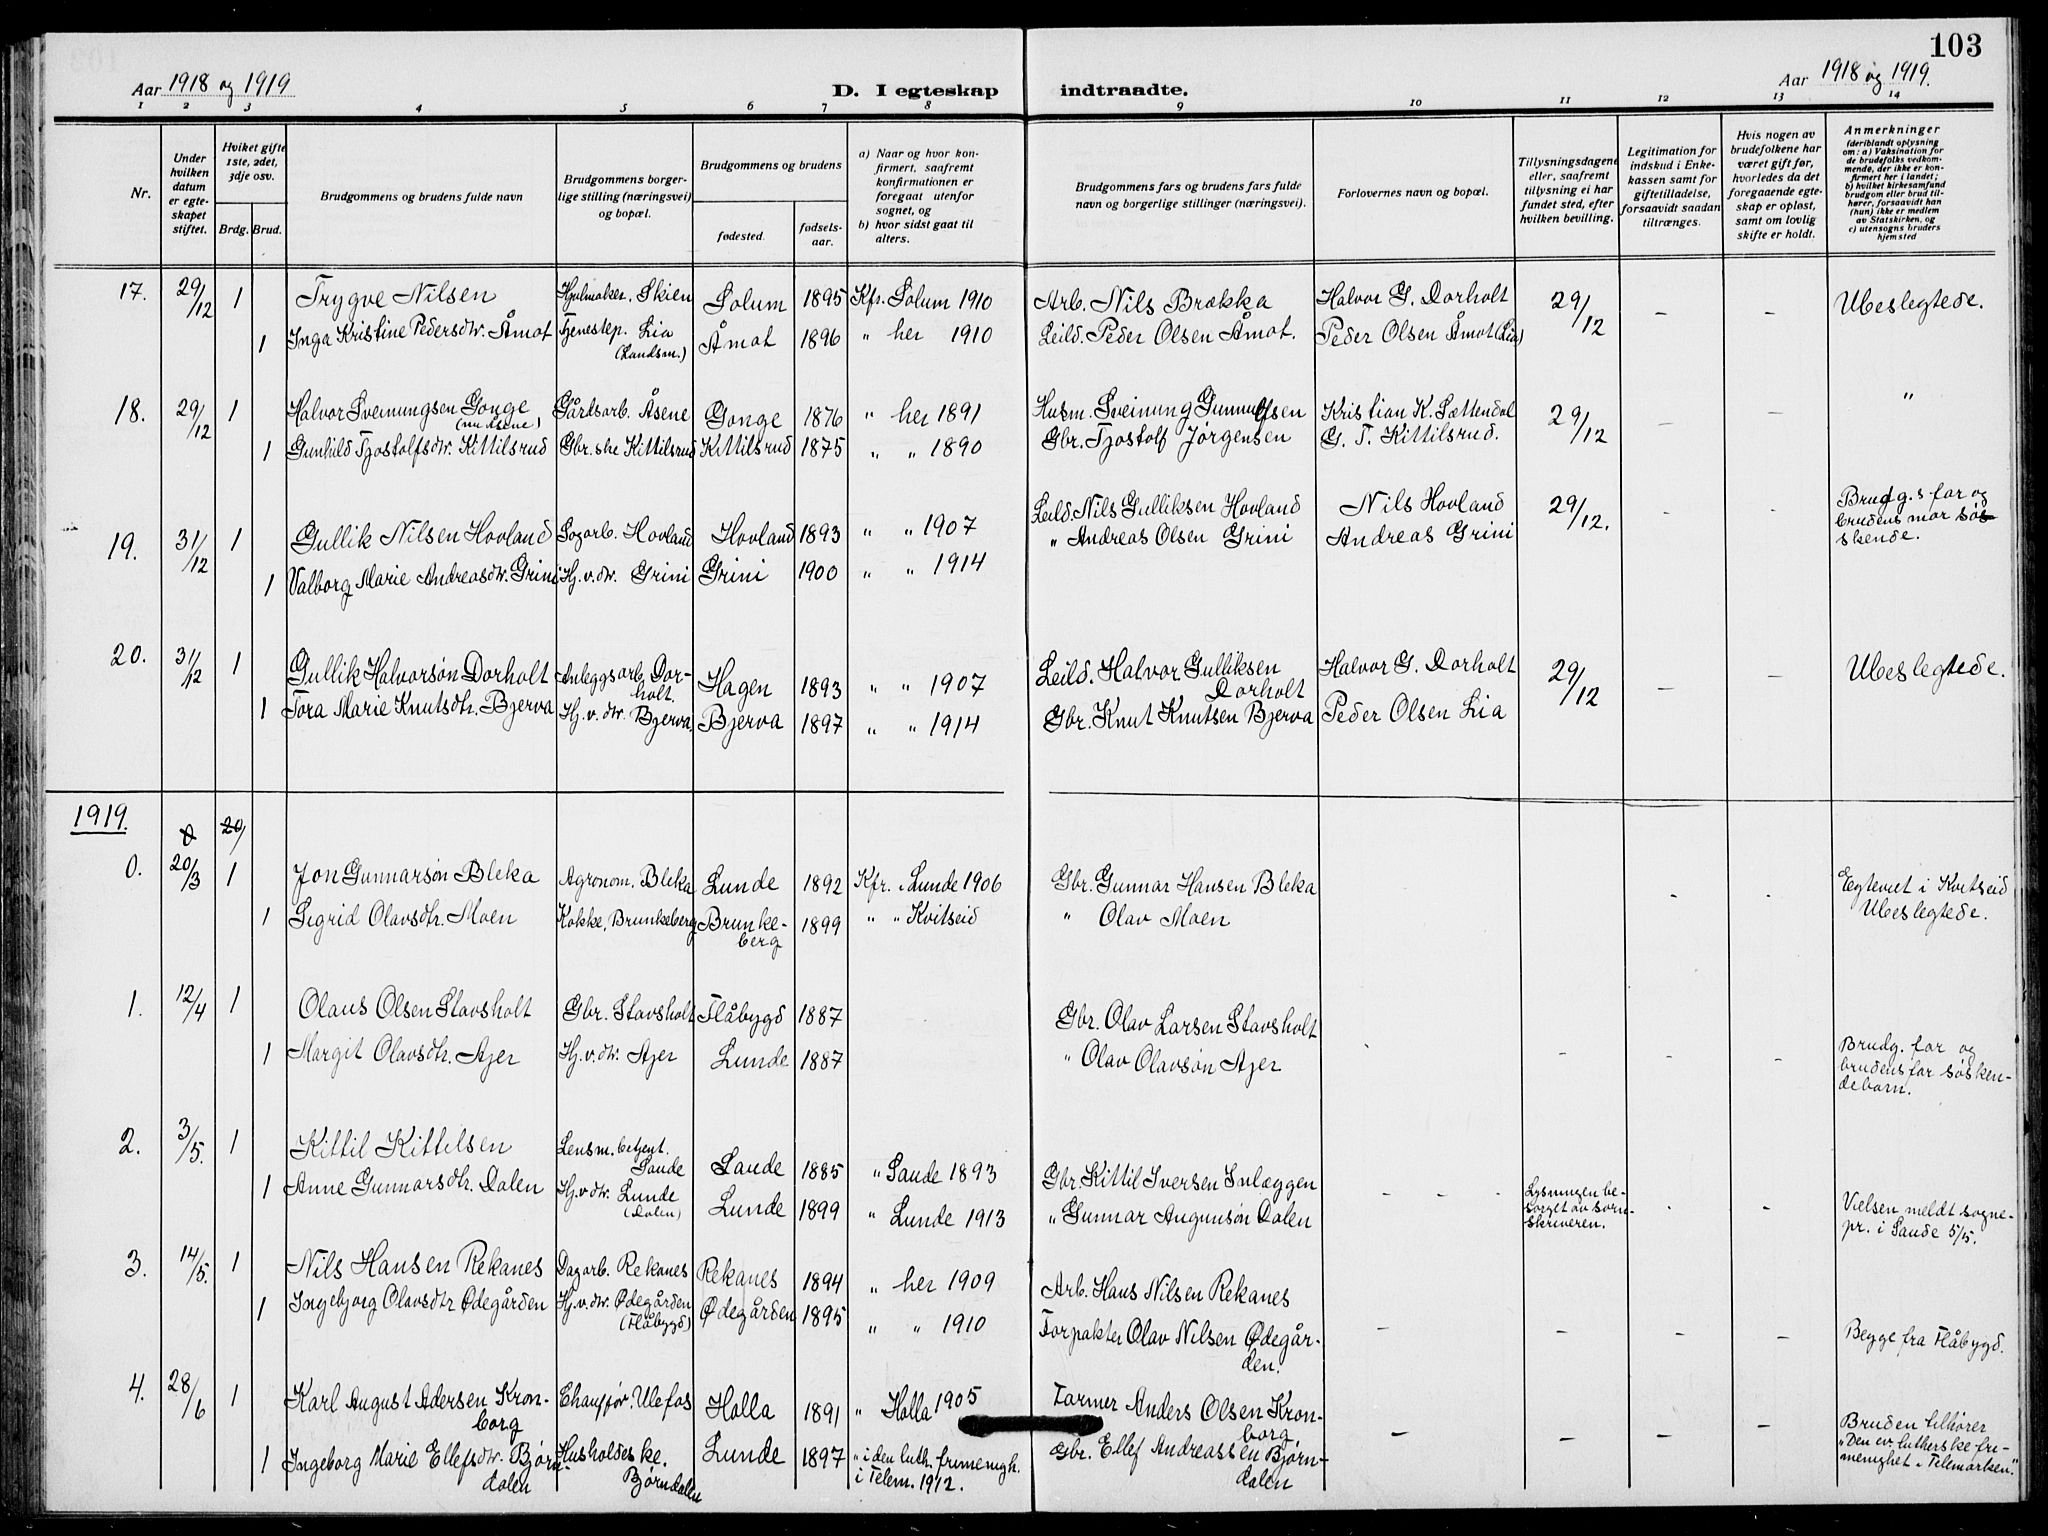 103
Aar 1918 og 1919
D. I egteskap indtraadte.
Aar 1918 og 1919.
1 2 3 4 5 6 7 8 9 10 11 12 13 14
Nr.
Under hvilken datum er egteskapet stiftet.
Hviket gifte 1ste, 2det, 3dje osv.
Brdg. Brud.
Brudgommens og brudens fulde navn
Brudgommens borgerlige stilling (næringsvei) og bopæl.
Brudgommens og brudens
fødested.
fødselsaar.
a) Naar og hvor konfirmert, saafremt konfirmationen er foregaat utenfor sognet, og
b) hvor sidst gaat til alters.
Brudgommens fars og brudens fars fulde navn og borgerlige stillinger (næringsvei).
Forlovernes navn og bopæl.
Tillysningsdagene eller, saafremt tillysning ei har fundet sted, efter hvilken bevilling.
Legitimation for indskud i Enkekassen samt for giftetilladelse, forsaavidt saadan tiltrænges.
Hvis nogen av brudefolkene har været gift før, hvorledes da det foregaaende egteskap er opløst, samt om lovlig skifte er holdt.
Anmerkninger (deriblandt oplysning om: a) Vaksination for de brudefolks vedkommende, der ikke er konfirmert her i landet; b) hvilket kirkesamfund brudgom eller brud tilhører, forsaavidt han (hun) ikke er medlem av Statskirken, og c) utensogns bruders hjemsted
17. 29/12 1 Trygve Nilsen Hjulmaker. Skien Solum 1895 Kfr. Solum 1910 Arb. Nils Brækka Halvor G. Dorholt 29/12 – – Ubeslegtede.
1 Inga Kristine Pedersdtr. Åmot Tjenestep. Lia (Landsm.) Åmot 1896 " her 1910 Leild. Peder Olsen Åmot. Peder Olsen Åmot (Lia)
18. 29/12 1 Halvor Sveinungsen Gonge (nu Åsene) Gårdsarb. Åsene Gonge 1876 " her 1891 Husm. Sveinung Gunnulfsen Kristian K. Sættendal 29/12 – – "
1 Gunhild Tjostolfsdtr. Kittilsrud Gbr. ske Kittilsrud Kittilsrud 1875 " " 1890 Gbr. Tjostolf Jørgensen G. T. Kittilsrud.
19. 31/12 1 Gullik Nilsen Hovland Sagarb. Hovland Hovland 1893 " " 1907 Leild. Nils Gulliksen Hovland Nils Hovland 29/12. - - Brudg.s far og brudens mor søskende.
1 Valborg Marie Andreasdtr. Grini Hj.v.dtr. Grini Grini 1900 " " 1914 " Andreas Olsen Grini Andreas Grini
20. 31/12 1 Gullik Halvorsøn Dorholt Anleggsarb. Dorholt. Hagen 1893 " " 1907 Leild. Halvor Gulliksen Dorholt Halvor G. Dorholt 29/12 – – Ubeslegtede.
1 Tora Marie Knutsdtr. Bjerva Hj.v.dtr. Bjerva. Bjerva 1897 " " 1914 Gbr. Knut Knutsen Bjerva Peder Olsen Lia
1919.
20/
0. 20/3 1 Jon Gunnarsøn Bleka Agronom. Bleka Lunde 1892 Kfr. Lunde 1906 Gbr. Gunnar Hansen Bleka - - - - Egteviet i Kvitseid Ubeslegtede.
1 Sigrid Olavsdtr. Moen Kokke, Brunkeberg Brunkeberg 1899 " " Kvitseid " Olav Moen
1. 12/4 1 Olaus Olsen Stavsholt Gbr. Stavsholt Flåbygd 1887 Gbr. Olav Larsen Stavsholt
1 Margit Olavsdtr. Ajer Hj.v.dtr. Ajer Lunde 1887 " Olav Olavsøn Ajer - - - - Brudg. far og brudens far søskendebarn.
2. 3/5. 1 Kittil Kittelsen Lensm. betjent. Saude Saude 1885 " Saude 1893 Gbr. Kittil Iversen Inlæggen - - - Lysningen besørget av sorenskriveren. - - Vielsen meldt sognepr. i Saude 5/5.
1 Anne Gunnarsdtr. Dalen Hj.v.dtr. Lunde (Dalen) Lunde 1899 " Lunde 1913 " Gunnar Augunsøn Dalen
3. 14/5. 1 Nils Hansen Rekanes Dagarb. Rekanes Rekanes 1894 " her 1909 Arb. Hans Nilsen Rekanes
1 Ingebjorg Olavsdtr Ødegården Hj.v.dtr. Ødegården (Flåbygd) Ødegården 1895 " " 1910 Forpakter Olav Nilsen Ødegården. – – – – Begge fra Flåbygd.
4. 28/6 1 Karl August Adersen Kronborg Chauffør. Ulefos Holla 1891 " Holla 1905 Farmer Anders Olsen Kronborg – – – – Bruden tilhører "Den ev. lutherske frimenighet i Telemarken."
1 Ingeborg Marie Ellefsdtr. Bjørndalen Husholdeske. Bjørndalen Lunde 1897 " i den luth. frimenigh. i Telem. 1912. Gbr. Ellef Andreassen Bjørndalen